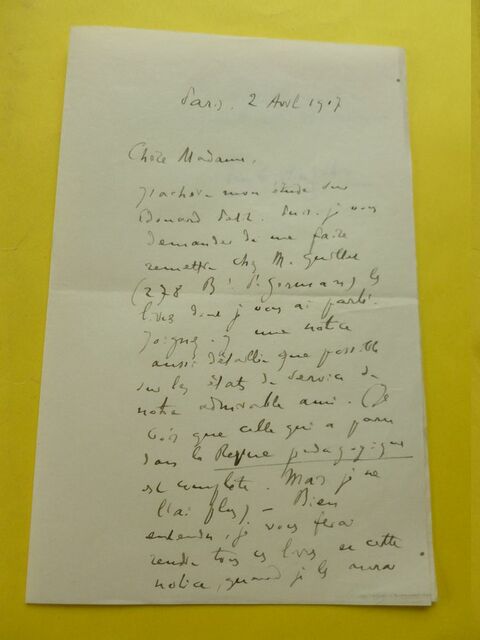 Paris, 2 Avril 1917
Chère Madame,
J'achève mon étude sur
Edouard Petit. Puis-je vous
demander de me faire
remettre chez M. Guillet
(278 Bd St Germain) les
livres dont je vous ai parlé.
Joignez-y une notice
aussi détaillée que possible
sur les états de service de
notre admirable ami. (Je
crois que celle qui a paru
dans la Revue pédagogique
est complète. Mais je ne
l'ai plus) – Bien
entendu, je vous ferai
rendre tous ces livres et cette
notice, quand je les aurai